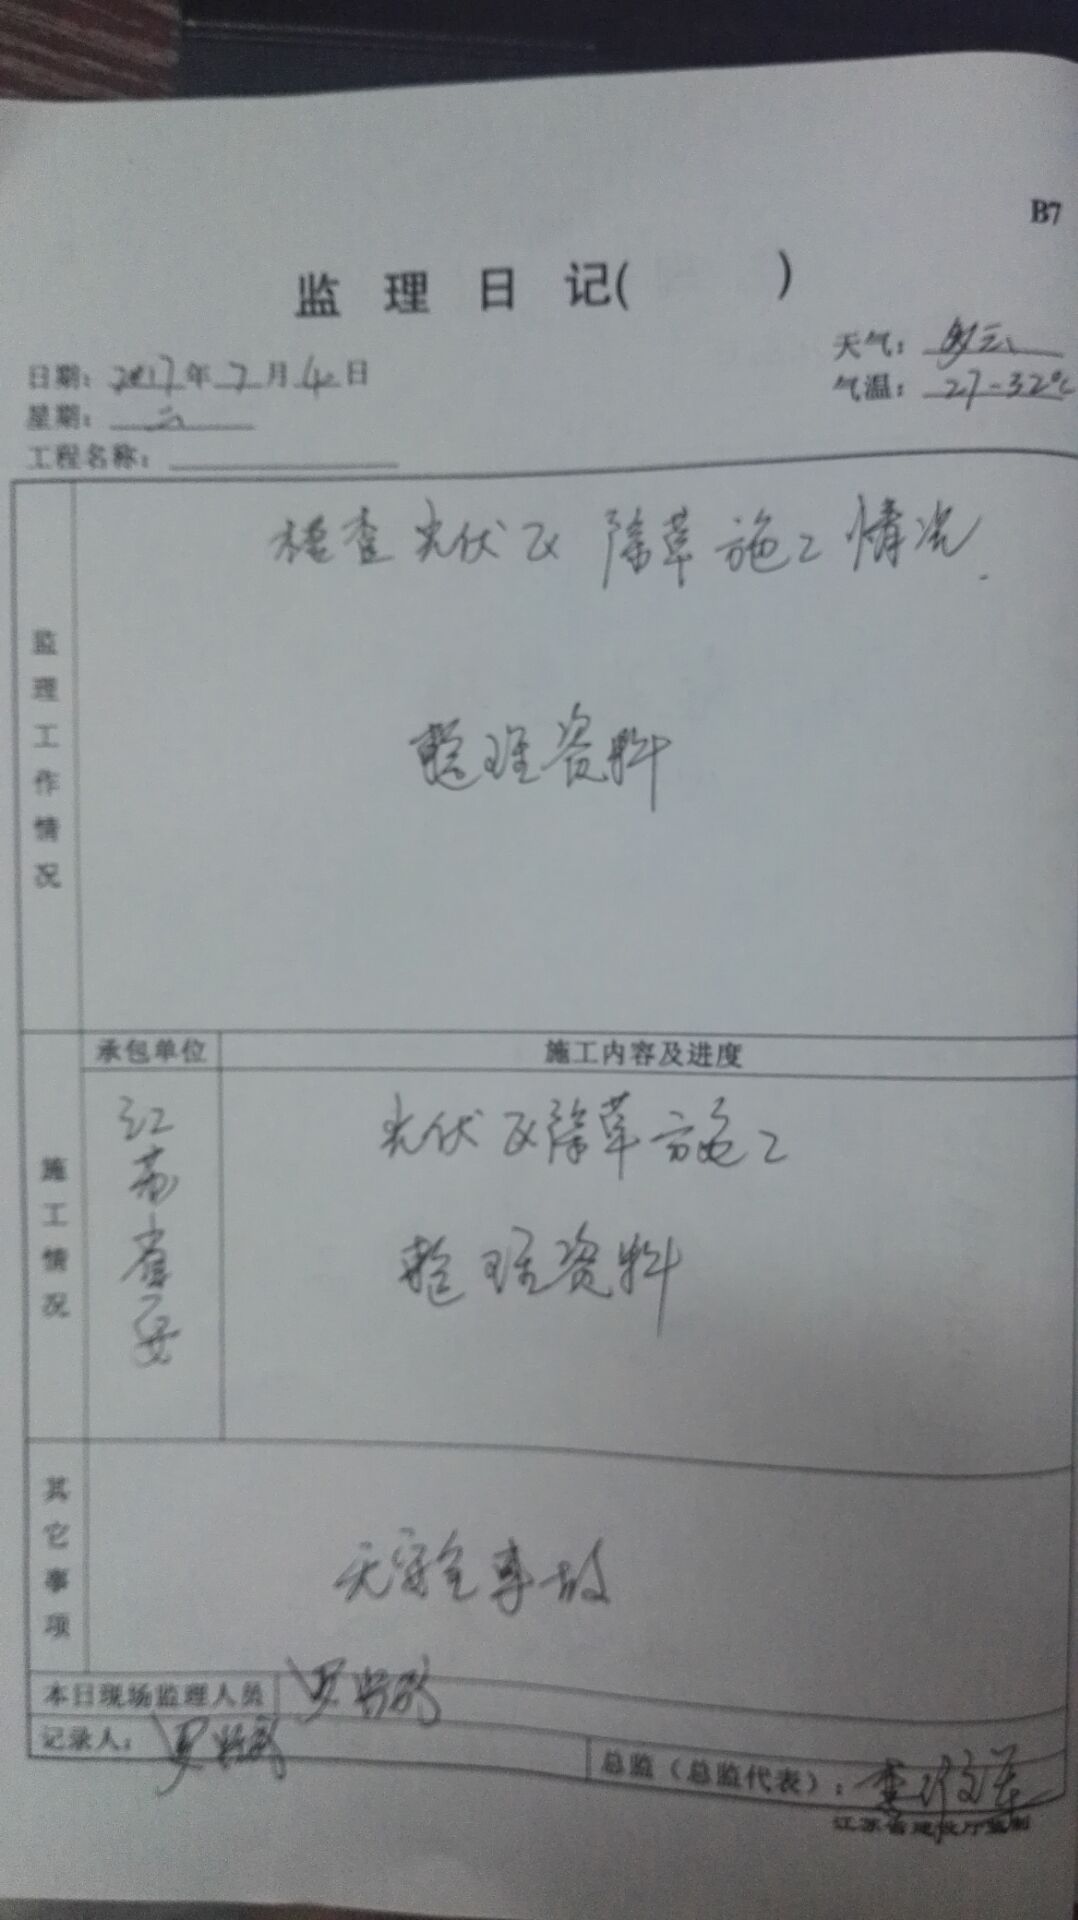 B7
监 理 日 记( )
日期: 2017年7月4日
天气: 多云
星期: 二
气温: 27-32℃
工程名称:
监理工作情况
检查光伏及除草施工情况.
整理资料
承包单位
施工内容及进度
施工情况
江苏省安
光伏及除草施工
整理资料
其它事项
无安全事故
本日现场监理人员
记录人:
总监(总监代表):
江苏省建设厅监制